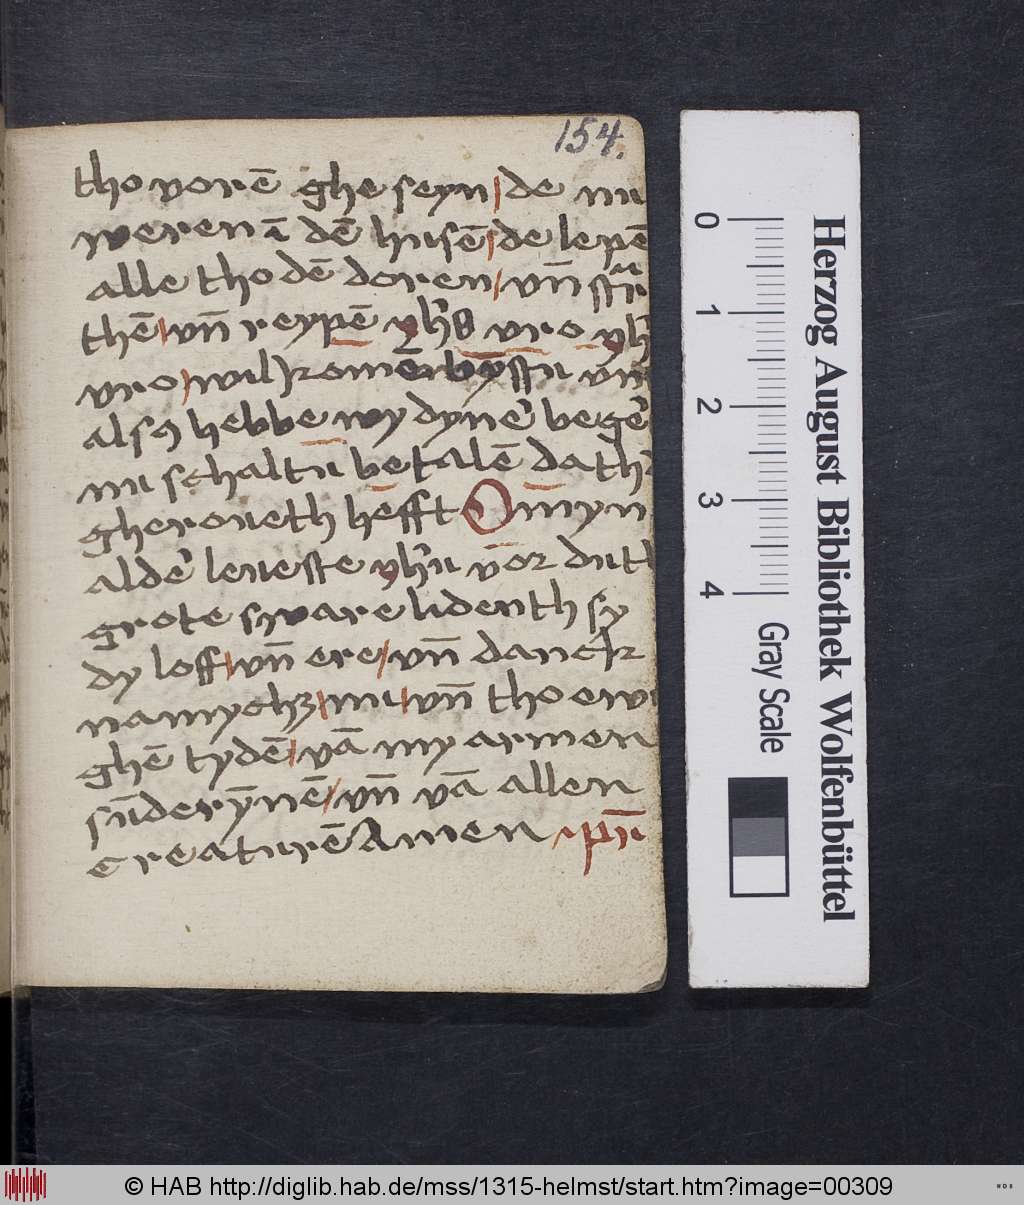 154.
tho vorē ghe seyn / de nu
weren ī dē husē / de lepē
alle tho dē doren / vn̄
thē / vn̄ reypē yh̄s vro yh̄s
vro / wilkomē bystu vn̄
alsꝫ hebbe wy dyner̄ beger̄
nu schaltu betalē dath
gheroueth hefft O myn
alder̄ leueste yh̄u vor duth
grote sware lidenth sy
dy loff / vn̄ ere / vn̄ danck
namychꝫ / nu / vn̄ tho ewi
ghē tydē / vā my armen
sūderȳnē / vn̄ vā allen
creaturē Amen pn̄r
0 1 2 3 4
Gray Scale
Herzog August Bibliothek Wolfenbüttel
© HAB http://diglib.hab.de/mss/1315-helmst/start.htm?image=00309